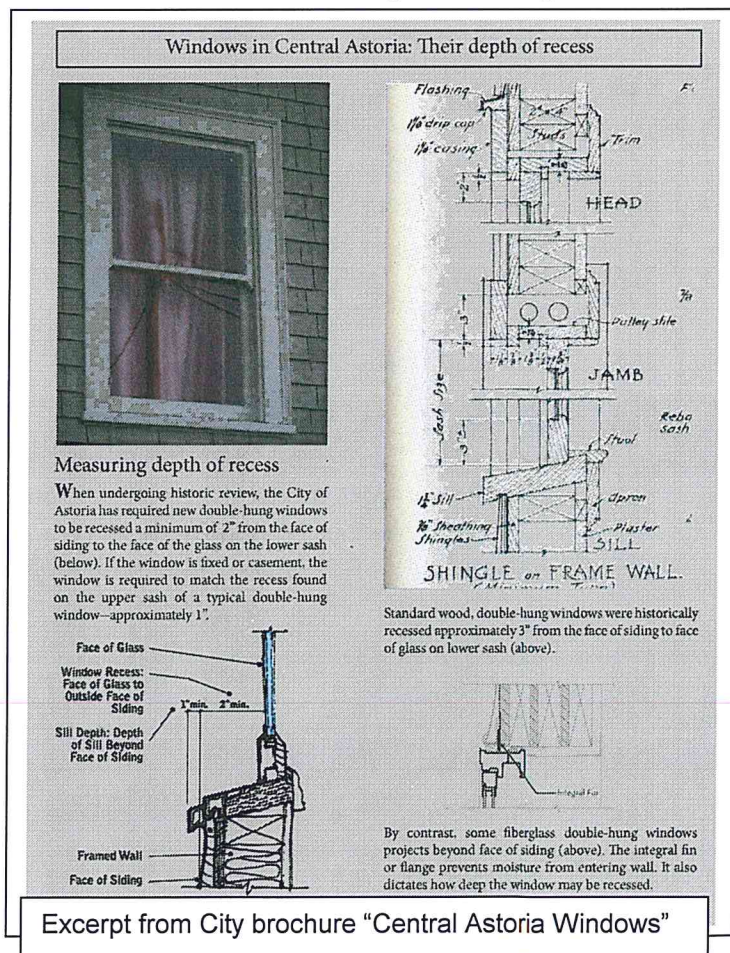 Windows in Central Astoria: Their depth of recess
Measuring depth of recess
When undergoing historic review, the City of
Astoria has required new double-hung windows
to be recessed a minimum of 2" from the face of
siding to the face of the glass on the lower sash
(below). If the window is fixed or casement, the
window is required to match the recess found
on the upper sash of a typical double-hung
window—approximately 1".
Face of Glass
Window Recess:
Face of Glass to
Outside Face of
Siding
1" min. 2" min.
Sill Depth: Depth
of Sill Beyond
Face of Siding
Framed Wall
Face of Siding
Flashing
1⅛" drip cap
Studs
1⅛" casing
Trim
HEAD
Pulley stile
JAMB
Sash Size
sash
Stool
1¾" Sill
Apron
Sheathing
Plaster
Shingles
SILL
SHINGLE on FRAME WALL.
Standard wood, double-hung windows were historically
recessed approximately 3" from the face of siding to face
of glass on lower sash (above).
Integral Fin
By contrast, some fiberglass double-hung windows
projects beyond face of siding (above). The integral fin
or flange prevents moisture from entering wall. It also
dictates how deep the window may be recessed.
Excerpt from City brochure “Central Astoria Windows”